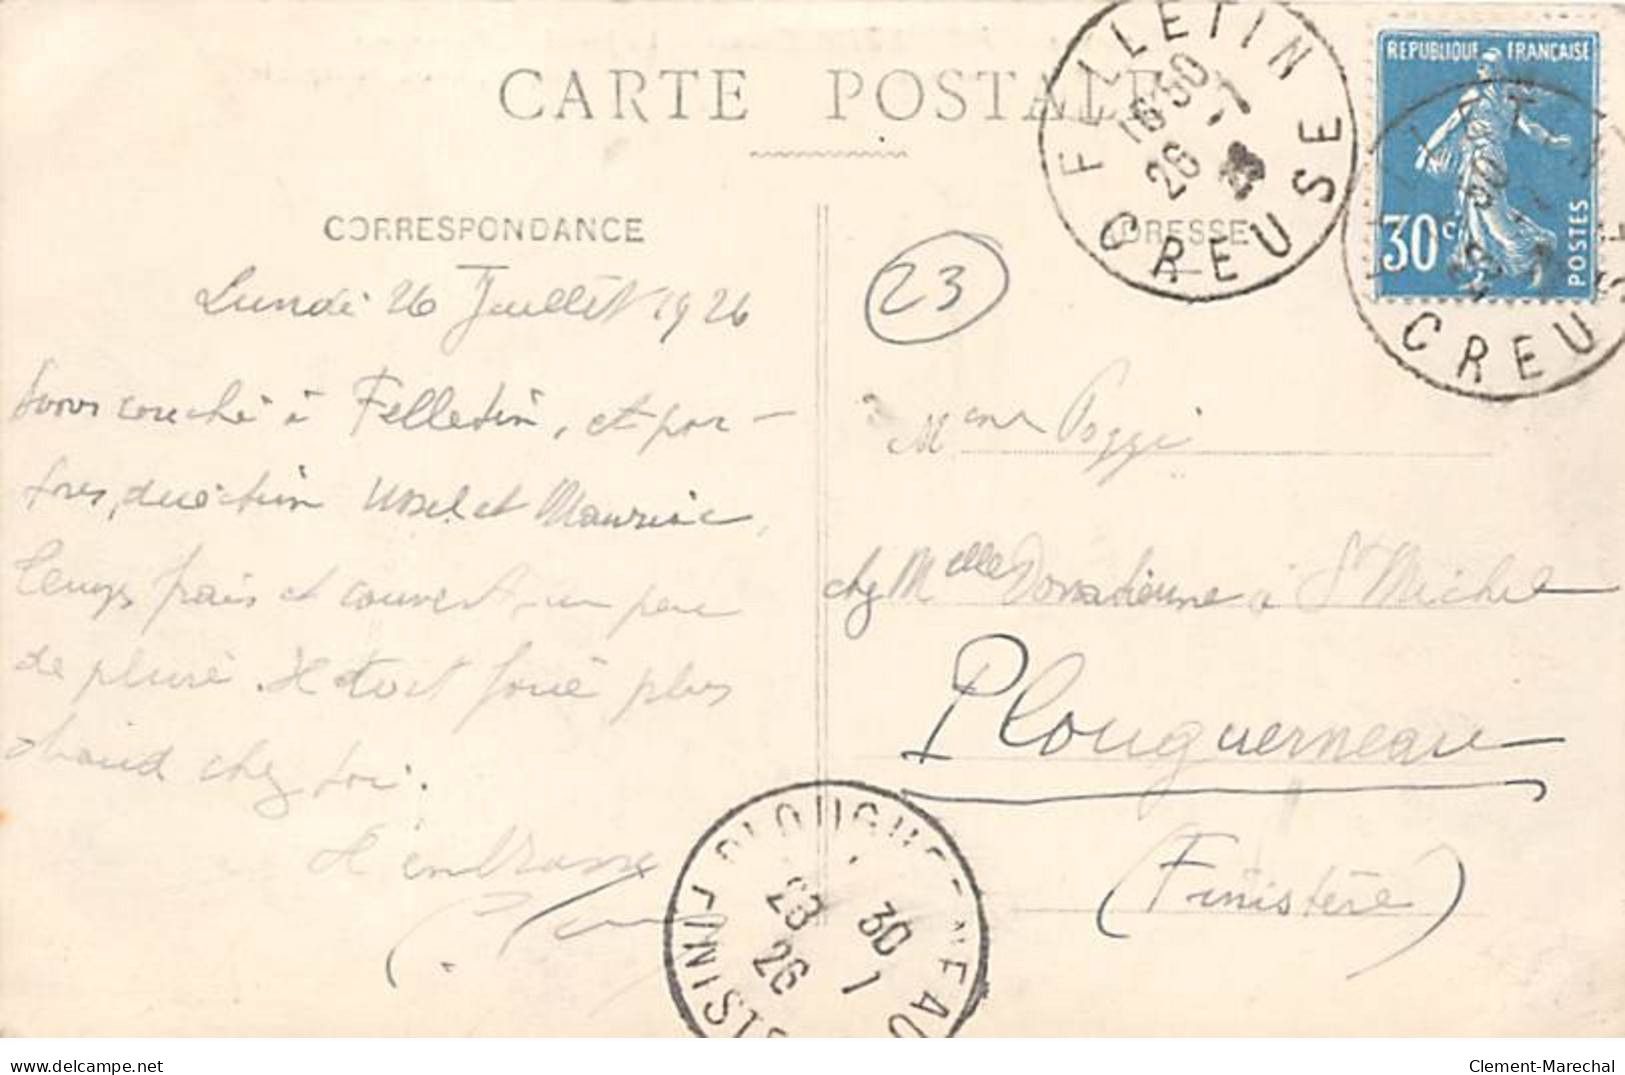 CARTE POSTALE
CORRESPONDANCE
ADRESSE
FELLETIN
16 30
26 -7
CREUSE
REPUBLIQUE FRANÇAISE
30c
POSTES
CREU
23
Lundi 26 Juillet 1926
Avons couché à Felletin, et par-
tons, direction Ussel et Mauriac,
temps frais et couvert, un peu
de pluie. Il doit faire plus
chaud chez toi.
Je t'embrasse
Mme Poggi
chez Melle Donatienne à St Michel
Plouguerneau
(Finistère)
PLOUGUERNEAU
30
28 7
26
FINIST
delcampe.net
Clement-Marechal